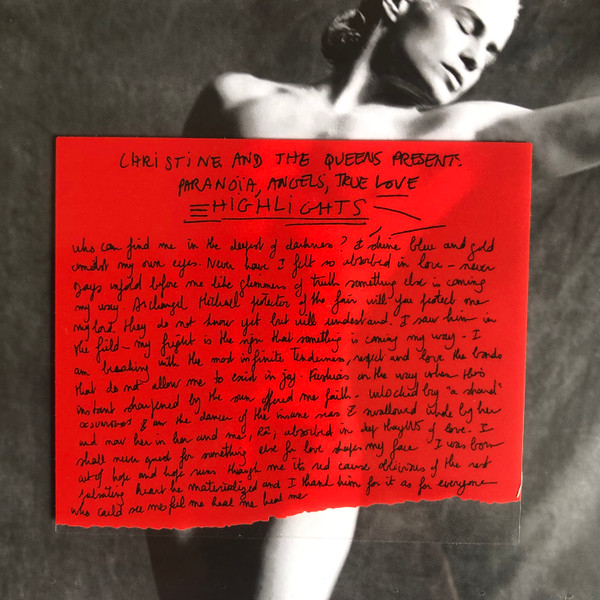 CHRISTINE AND THE QUEENS PRESENTS:
PARANOÏA, ANGELS, TRUE LOVE
HIGHLIGHTS
who can find me in the deepest of darkness? I shine blue and gold
amidst my own eyes. Never have I felt so absorbed in love - never
Days unfold before me like glimmers of truth something else is coming
my way. Archangel Michael protector of the fair will you protect me
my lord. they do not know yet but will understand. I saw him in
the field - my fright is the sign that something is coming my way - I
am breaking with the most infinite Tenderness, respect and love the bonds
that do not allow me to exist in joy. on the way when this
instant sharpened by the sun offered me faith - unlocked by "a strand"
I am the dancer of the insane seas I swallowed whole by her
and now her in her and me, absorbed in deep of love. I
shall never quest for something else for love shapes my face - I was born
out of hope and hope runs through me its red cause oblivious of the rest
pulsating heart he materialized and I thank him for it as for everyone
who could see me feel me heal me heal me